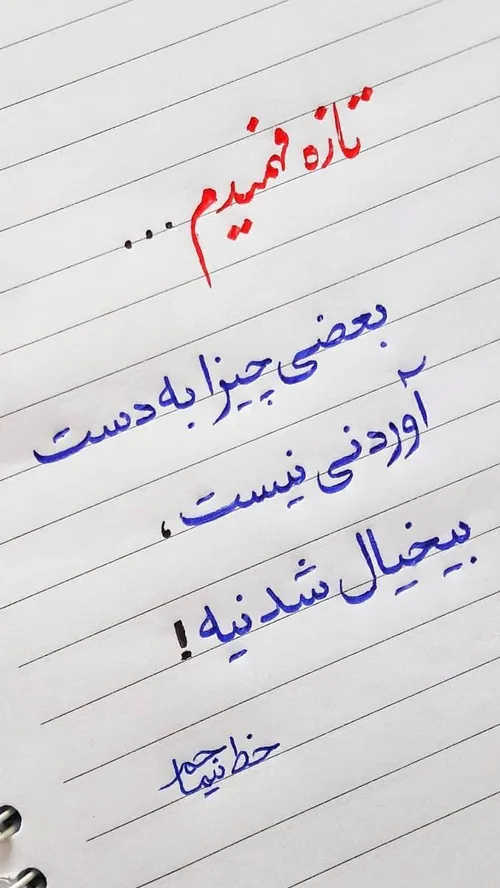 تازه فهمیدم ...
بعضی چیزا به دست
آوردنی نیست،
بیخیال شدنیه!
خط نیما